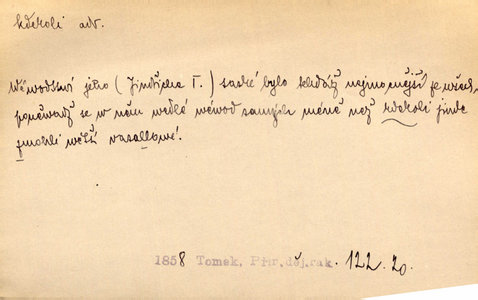 kdekoli adv.
Wéwodstwí jeho (Jindřicha I.) saské bylo tehdáž nejmocnější ze wšech,
poněwadž se w něm wedlé wéwod samých méně než kdekoli jinde
zmohli wětší vasallowé.
1858 Tomek, Příř.děj.rak. 122. 20.